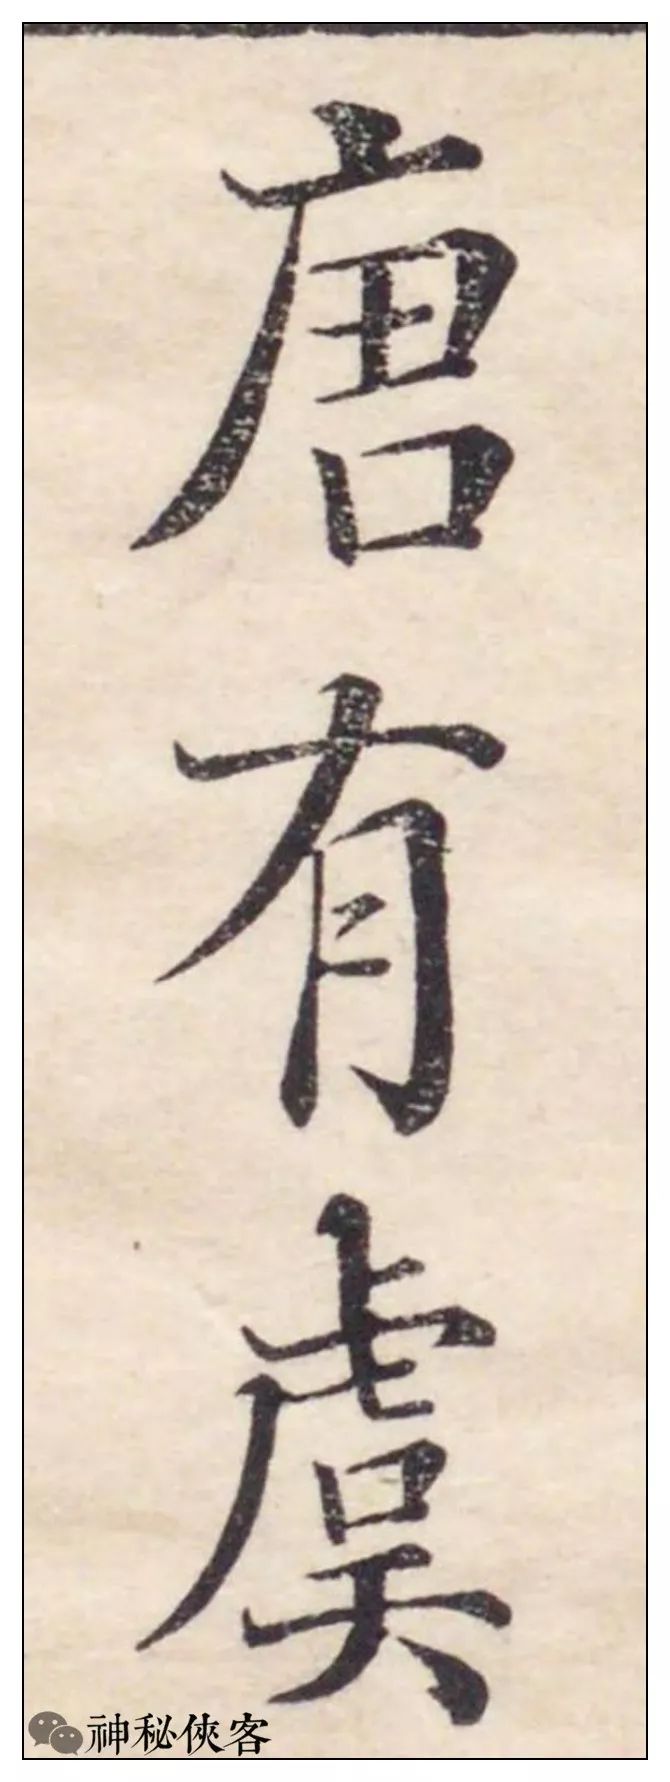 唐有虞
神秘俠客